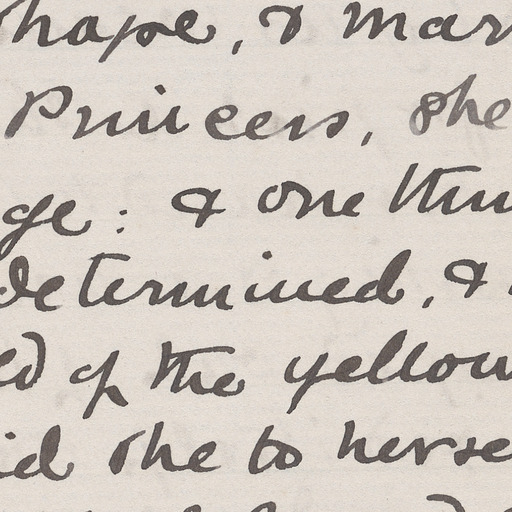 shape, & mar
Princess, she
ge: & one thin
determined, &
ed of the yellow
id she to herse